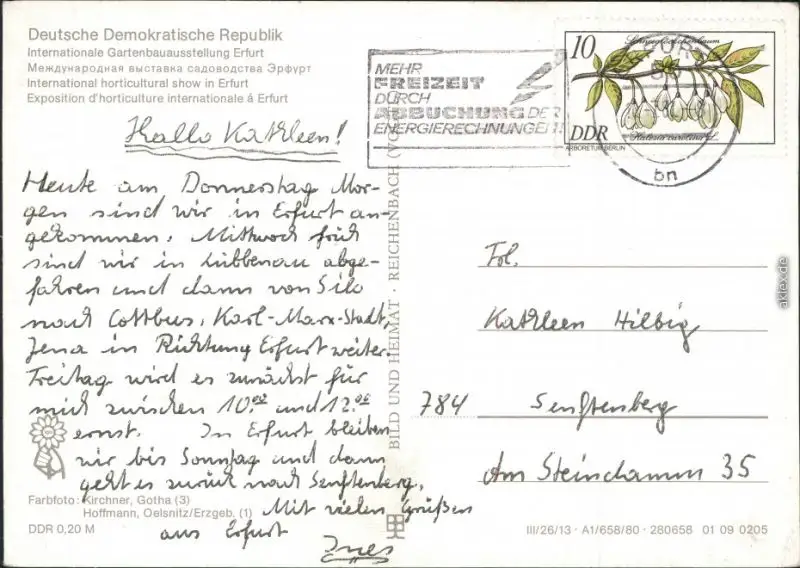 Deutsche Demokratische Republik
Internationale Gartenbauausstellung Erfurt
Международная выставка садоводства Эрфурт
International horticultural show in Erfurt
Exposition d'horticulture internationale á Erfurt
MEHR
FREIZEIT
DURCH
ABBUCHUNG DER
ENERGIERECHNUNGEN!
10
Schneeglöckchenbaum
DDR
Halesia carolina L.
ARBORETUM BERLIN
bn
Hallo Kathleen!
Heute am Donnerstag Mor-
gen sind wir in Erfurt an-
gekommen. Mittwoch früh
sind wir in Lübbenau abge-
fahren und dann von Silo
nach Cottbus, Karl-Marx-Stadt,
Jena in Richtung Erfurt weiter.
Freitag wird es zunächst für
mich zwischen 10.00 und 12.00
ernst. In Erfurt bleiben
wir bis Sonntag und dann
geht es zurück nach Senftenberg.
Mit vielen Grüßen
aus Erfurt
Ines
Frl.
Kathleen Hilbig
784 Senftenberg
Am Steindamm 35
BILD UND HEIMAT · REICHENBACH (VO
Farbfoto: Kirchner, Gotha (3)
Hoffmann, Oelsnitz/Erzgeb. (1)
DDR 0,20 M
III/26/13 · A1/658/80 · 280658 01 09 0205
akpool.de